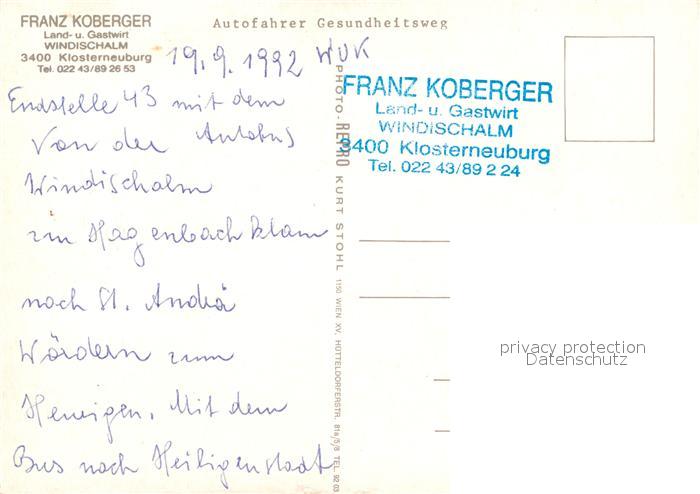 FRANZ KOBERGER
Land- u. Gastwirt
WINDISCHALM
3400 Klosterneuburg
Tel. 022 43/89 26 53
Autofahrer Gesundheitsweg
19.9.1992 WUK
Endstelle 43 mit dem
Von der Autobus
Windischalm
zur Hagenbachklam
nach St. Andrä
Wördern zum
Heurigen. Mit dem
Bus nach Heiligenstadt
PHOTO-REPRO KURT STOHL 1150 WIEN XV, HÜTTELDORFERSTR. 81a/5/8 TEL 92 03
FRANZ KOBERGER
Land- u. Gastwirt
WINDISCHALM
3400 Klosterneuburg
Tel. 022 43/89 2 24
privacy protection
Datenschutz